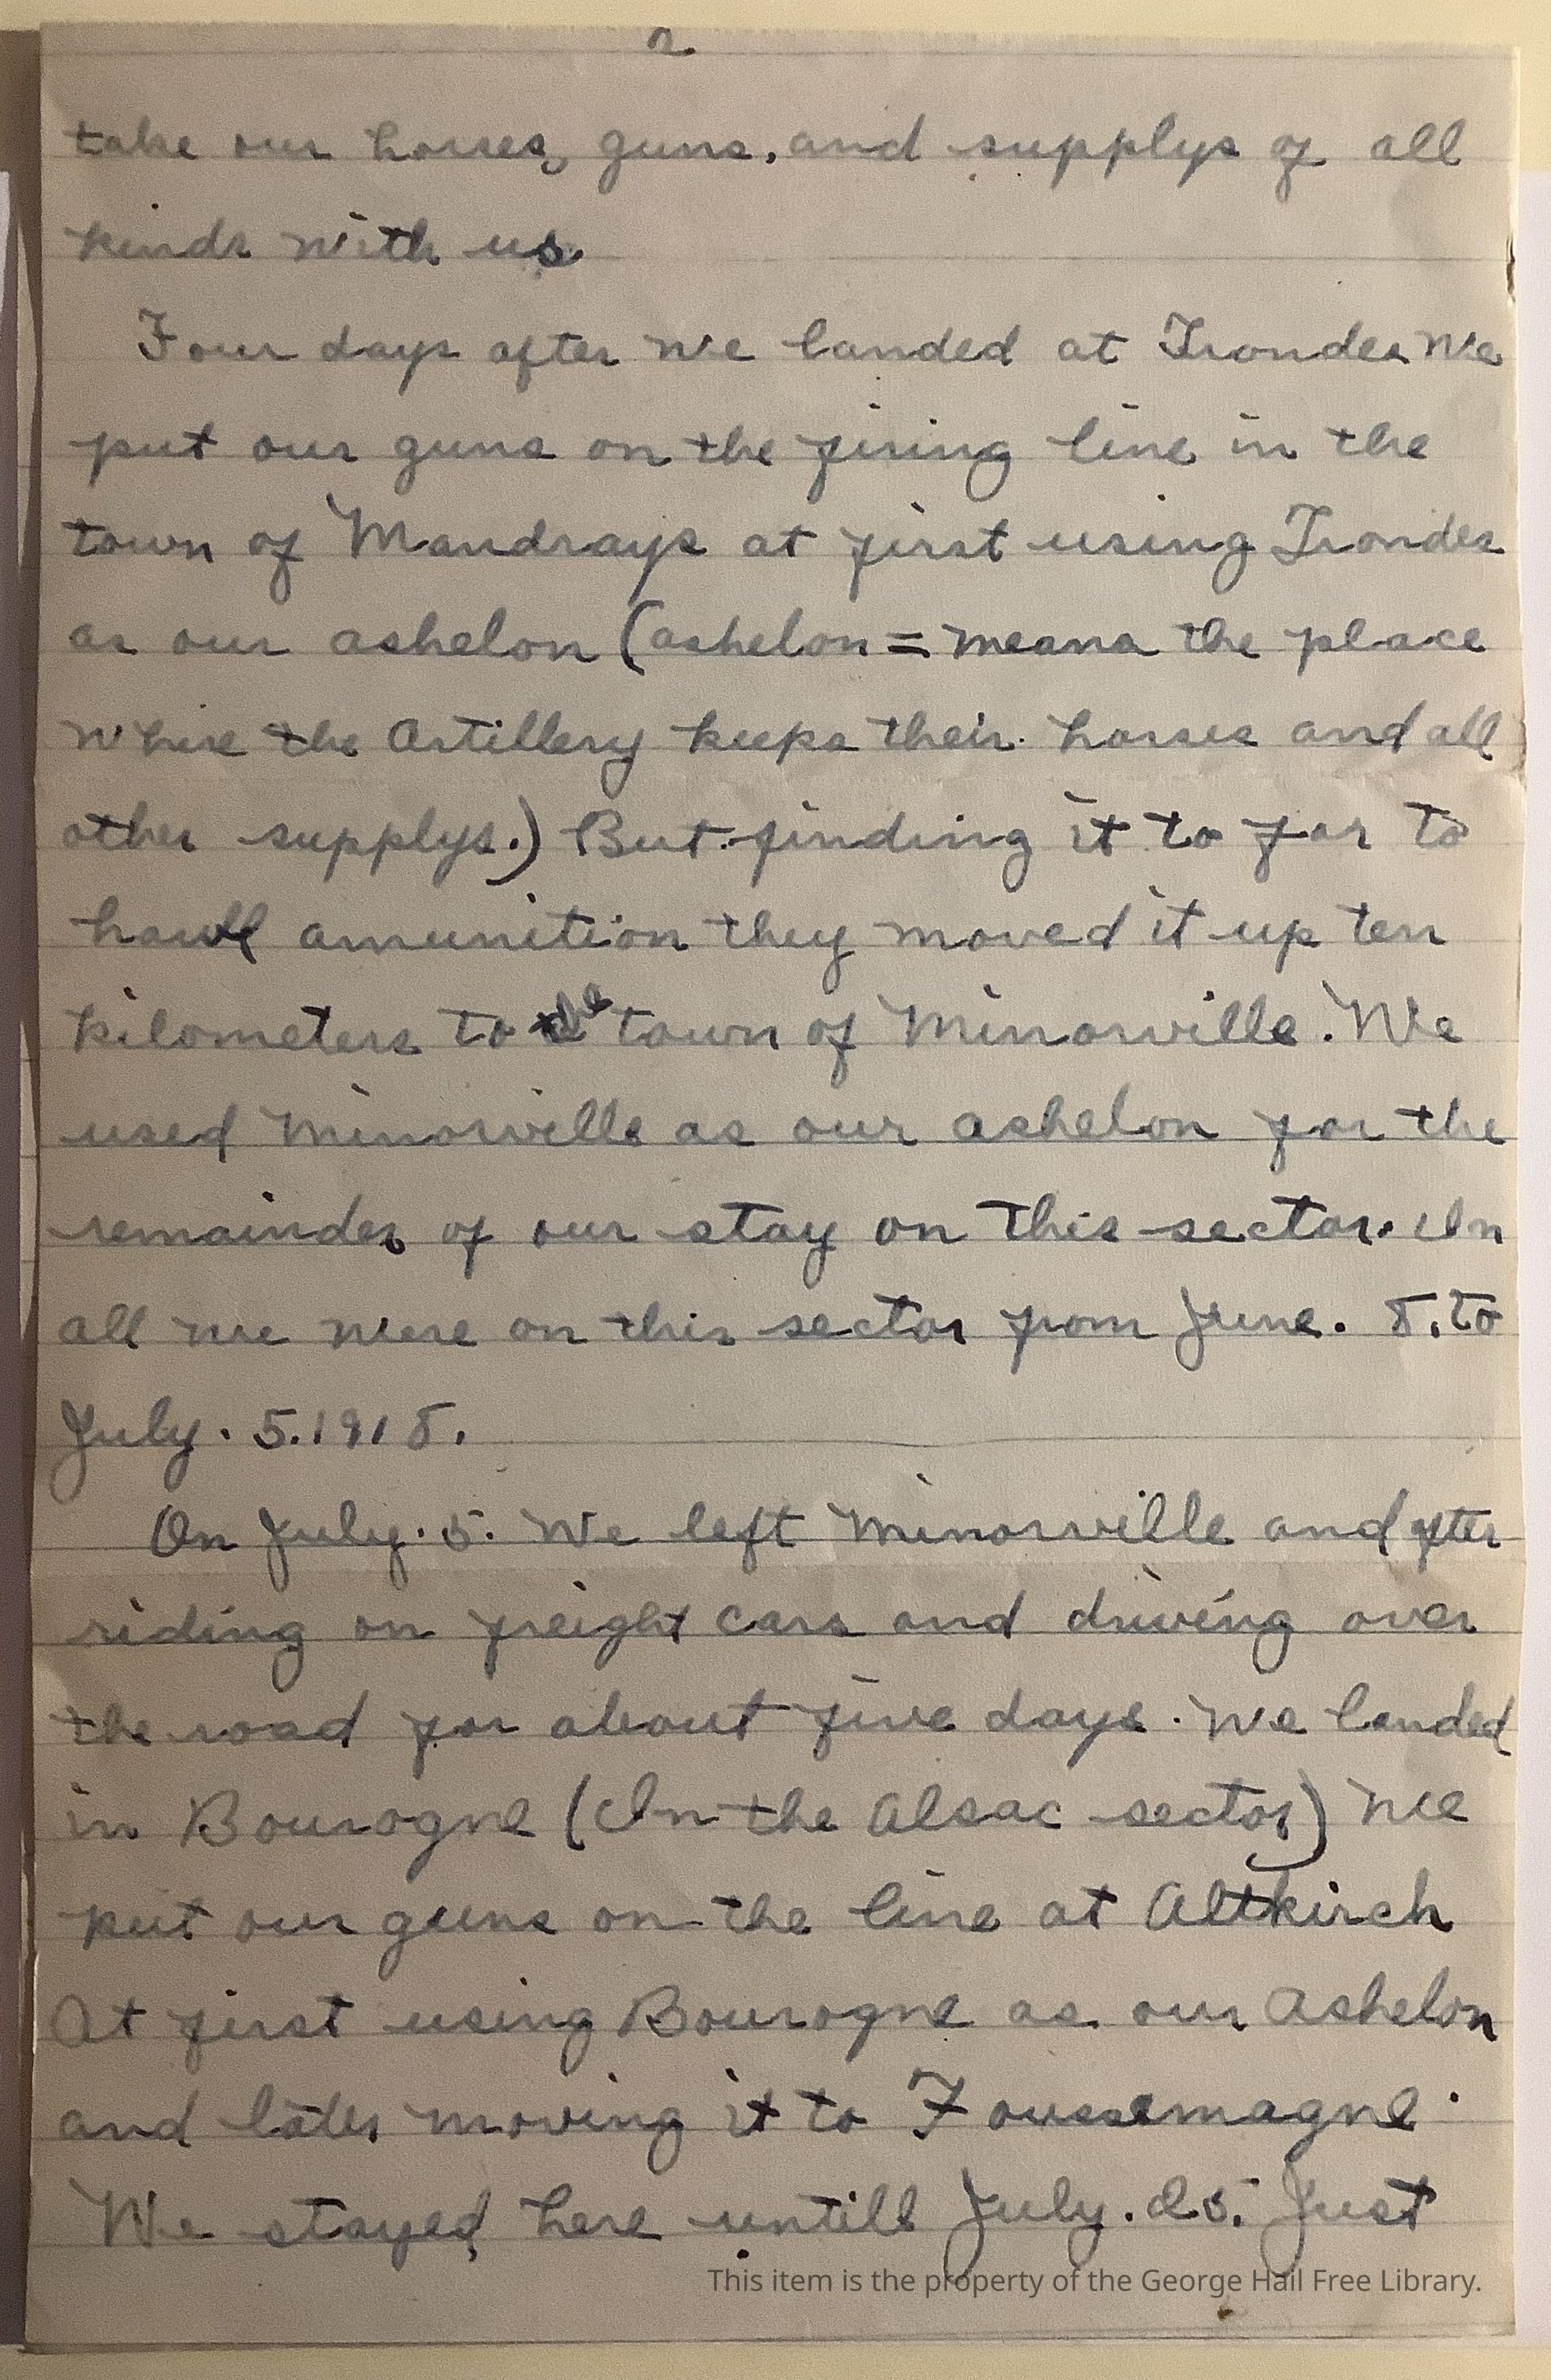 2
take our horses, guns, and supplys of all
kinds with us.
Four days after we landed at Trondes we
put our guns on the firing line in the
town of Mandrays at first using Trondes
as our ashelon (ashelon = means the place
where the Artillery keeps their horses and all
other supplys.) But finding it to far to
haull amunition they moved it up ten
kilometers to the town of Minorville. We
used Minorville as our ashelon for the
remainder of our stay on this sector. In
all we were on this sector from June. 8. to
July. 5. 1918.
On July. 5. We left Minorville and after
riding on freight cars and driving over
the road for about five days. We landed
in Bourogne (In the Alsac sector) we
put our guns on the line at Altkirch
At first using Bourogne as our Ashelon
and later moving it to Foussemagne.
We stayed here untill July. 25. Just
This item is the property of the George Hail Free Library.